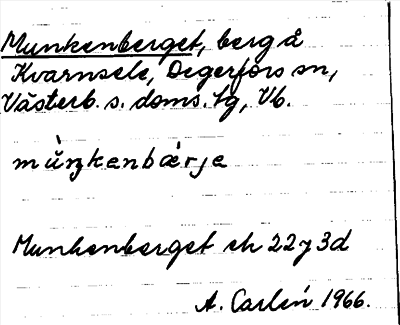 Munkenberget, berg å
Kvarnsele, Degerfors sn,
Västerb. s. doms. tg, Vb.
mùŋkenbærje
Munkenberget ek 22 y 3d
A. Carlén 1966.